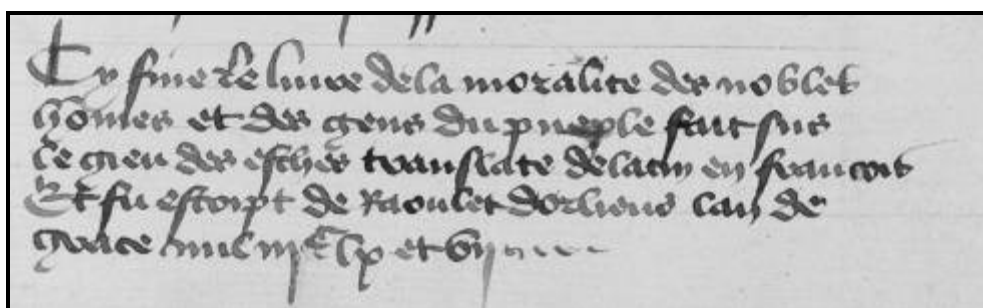 Cy fine le liure de la moralite des nobles
hōmes et des gens du pueple fait sus
le gieu des esches translate de latin en francois
Et fu escript de Raoulet dorliens lan de
grace mil iijᶜ lx et vij